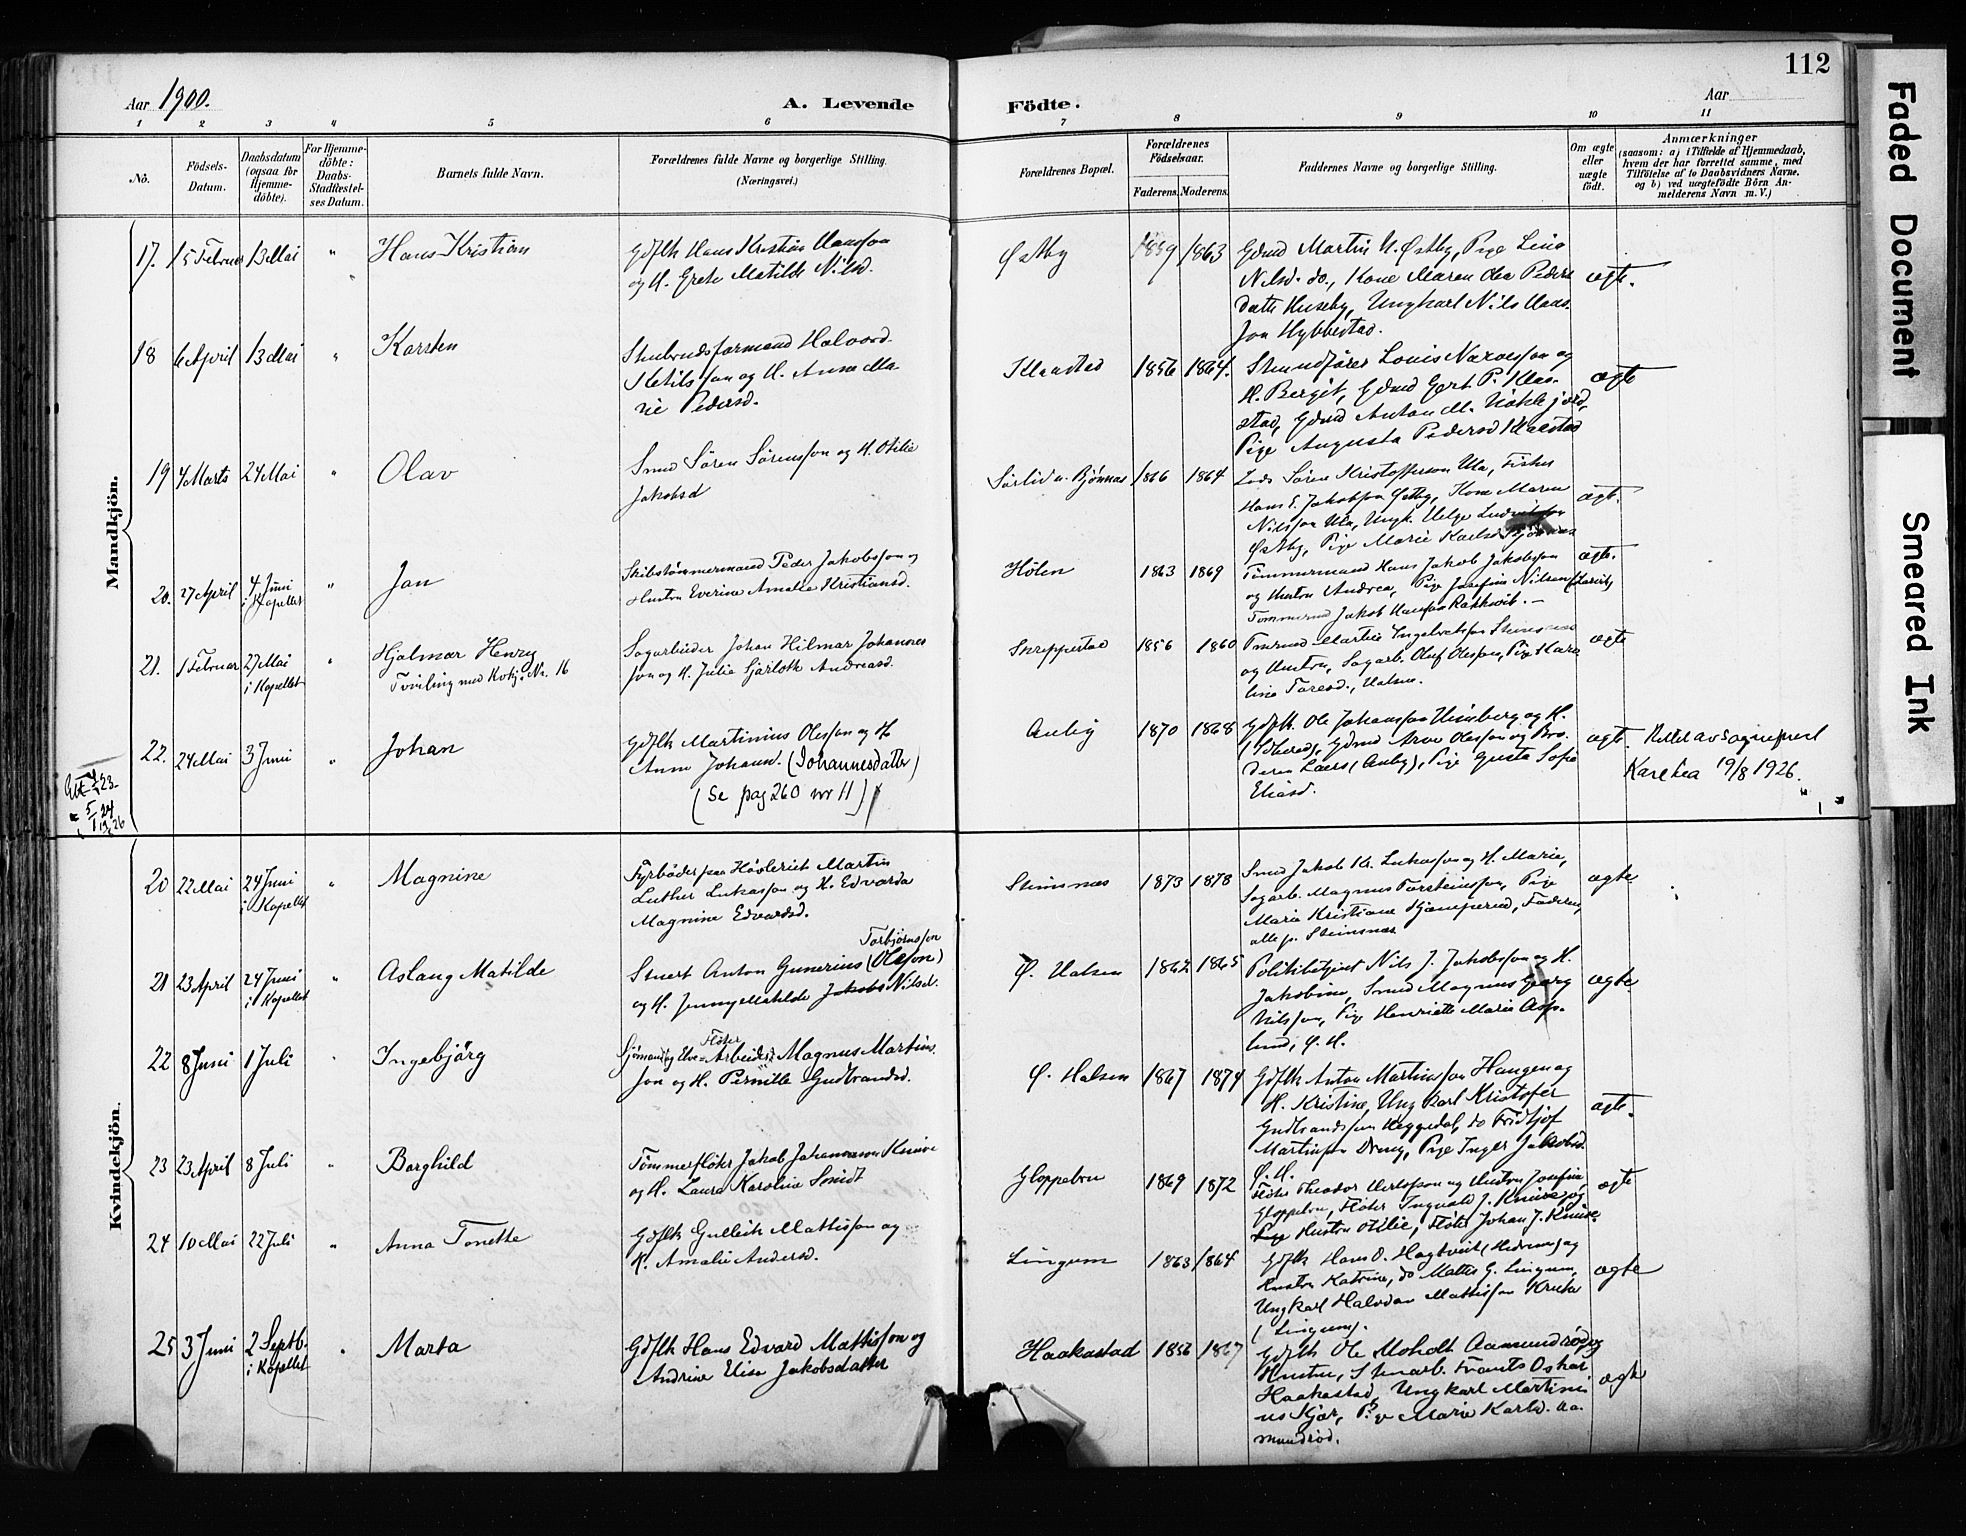 112
Aar 1900.
A. Levende
Födte.
Aar
1 2 3 4 5 6 7 8 9 10 11
No.
Födsels-
Datum.
Daabsdatum
(ogsaa for
Hjemme-
döbte).
For Hjemme-
döbte:
Daabs-
Stadfæstel-
ses Datum.
Barnets fulde Navn.
Forældrenes fulde Navne og borgerlige Stilling.
(Næringsvei.)
Forældrenes Bopæl.
Forældrenes
Födselsaar.
Faderens. Moderens.
Faddernes Navne og borgerlige Stilling.
Om ægte
eller
uægte
födt.
Anmærkninger
(saasom: a) i Tilfælde af Hjemmedaab,
hvem der har forrettet samme, med
Tilföielse af to Daabsvidners Navne,
og b) ved uægtefödte Börn An-
melderens Navn m. V.)
Mandkjön.
17. 15 Februar 13 Mai " Hans Kristian
Gdflk Hans Kristian Hansson
og H. Grete Matilde Nilsd.
Østby 1859 1863
Gdmd Martin N. Østby, Pige Lina
Nilsd. do., Kone Maren Olea Peders
datter Huseby, Ungkarl Nils Hans
son Hybbestad.
ægte.
18 6 April 13 Mai " Karsten
Stenbrudsformand Halvord
Ketilsson og H. Anne Ma
rie Pedersd.
Klaastad 1856 1864.
Louis Narvesson og
H. Bergit, Gdmd Gort P. Klaa-
stad, Gdmd Anton M.
Pige Augusta Pedersd Klaastad
ægte
19 4 Marts 24 Mai " Olav
Smed Sören Sörensson og H. Otilie
Jakobsd
Sörlid u. Bjönnes 1866 1864
Lods Sören Kristofferson Ula, Fisker
Hans E. Jakobsson Østby, Kone Maren
Nilsson Ula, Ungk. Helge
Østby, Pige Marie Karlsd
ægte.
20. 27 April 4 Juni " Jan
i Kapellet
Skibstömmermand Peder Jakobsson og
Hustru Everine Amalie Kristiansd.
Holen 1863 1869
Tömmermand Hans Jakob Jakobsson
og Hustru Andrea, Pige Josefine Nilsen (Larvik)
Tömmermd Jakob Hansson Rakkevik. -
ægte.
21. 1 Februar 27 Mai " Hjalmar Henry
i Kapellet
Tvilling med Kvkj. Nr. 16
Sagarbeider Johan Hilmar Johannes
son og H. Julie Sjarlotte Andreasd.
Skreppestad 1856 1860
Martin Ingebretsson
og Hustru, Sagarb. Oluf Olsson, Pige Karo
line Toresd., Halsen.
ægte
22. 24 Mai 3 Juni " Johan
Gdflk Martinius Olesson og H.
Anne Johann. (Johannesdatter)
(Se pag 260 nr 11)
Auby 1870 1868
Gdflk. Ole Johansson Himberg og H.
Gdmd Arve Olesson og Bro
deren Laers (Auby), Pige Gusta Sofie
Eliasd.
ægte.
Rettet av sogneprest
Kare Lea 19/8 1926.
Kvindekjön.
20 22 Mai 24 Juni " Magnine
i Kapellet
Fyrböder paa Hövleriet Martin
Luther Lukasson og H. Edvarda
Magnine Edvardsd.
Steinsnæs 1873 1878
Smed Jakob Kr. Lukasson og H. Marie,
Sagarb. Magnus Torsteinsson, Pige
Marie Kristiane Hjæmperud, Faderen,
alle p. Steinsnæs
ægte
21 23 April 24 Juni " Aslaug Matilde
i Kapellet
Torbjörnsson
Stuert Anton Gunerius (Olsson)
og H. Jenny Matilde Jakobs Nilsd.
Ø. Halsen 1862 1865
Politibetjent Nils J. Jakobsson og H.
Jakobine, Smed Magnus Georg
Nilsson, Pige Henriette Marie Asp-
lund, Ø. H.
ægte
22 8 Juni 1 Juli Ingebjörg
Flöter
Sjömand og Elve-Arbeider Magnus Martins
son og H. Pernille Gudbrandsd.
Ø. Halsen 1867 1874
Gdflk Anton Martinsson Haugen og
H. Kristine, Ungkarl Kristofer
Gudbrandsson Heggedal, do Fridtjof
Martinsson Dreng, Pige Inger Jakobsd.
Ø. H.
ægte.
23 23 April 8 Juli " Borghild
Tömmerflöter Jakob Johannson Knive
og H. Laura Karoline Smidt
Gloppebro 1869 1872
Flöter Theodor og Hustru Josefine,
Gloppebro, Flöter Ingvald J. Knive og
Hustru Otilie, Flöter Johan J. Knive
ægte
24 10 Mai 22 Juli " Anna Tonette
Gdflk Gullik Mattisson og
H. Amalie Andersd.
Lingum 1863 1864
Gdflk Hans O. Hagtveit (Hedrum) og
Hustru Katrine, do Mattis G. Lingum,
Ungkarl Halvdan Mattisson
(Lingum).
ægte
25 3 Juni 2 Septb. " Marta
i Kapellet
Gdflk Hans Edvard Mattisson og
Andrine Elise Jakobsdatter
Haakastad 1856 1867
Gdflk Ole Moholt Aamundröd og
Hustru, Stenarb. Frants Oskar
Haakastad, Ungkarl Martini
us Kjær, Pige Marie Karlsd. Aa-
mundröd.
ægte
Faded Document
Smeared Ink